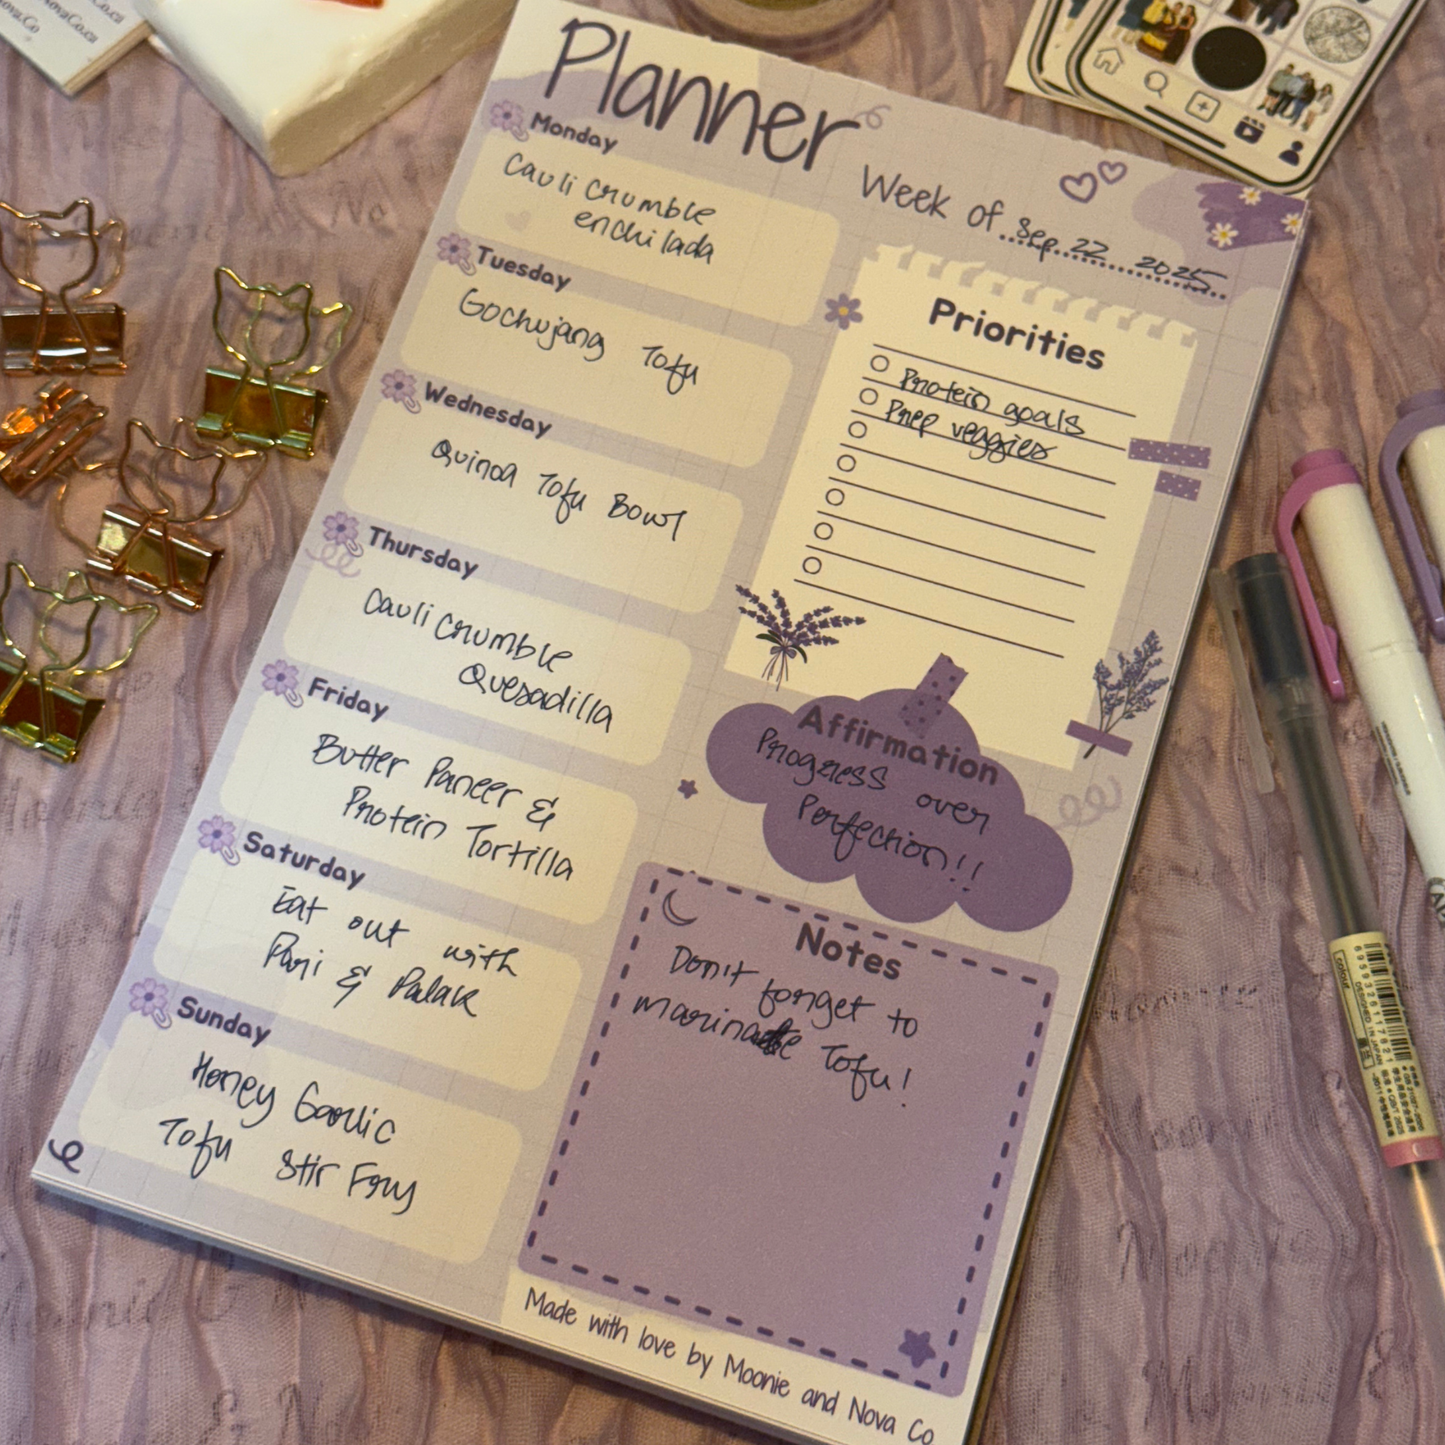 Planner
Week of Sep 22 2025
Monday
Cauli crumble
enchilada
Tuesday
Gochujang Tofu
Wednesday
Quinoa Tofu Bowl
Thursday
Cauli crumble
Quesadilla
Friday
Butter Paneer &
Protein Tortilla
Saturday
Eat out with
Pari & Palak
Sunday
Honey Garlic
Tofu Stir Fry
Priorities
Protein goals
Prep veggies
Affirmation
Progress over
Perfection!!
Notes
Don't forget to
marinate Tofu!
Made with love by Moonie and Nova Co